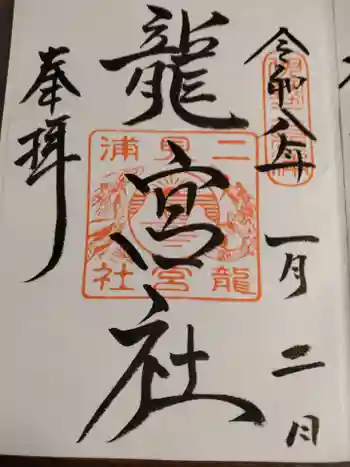 令和八年一月二日
龍宮社
二見浦
龍宮社
奉拝